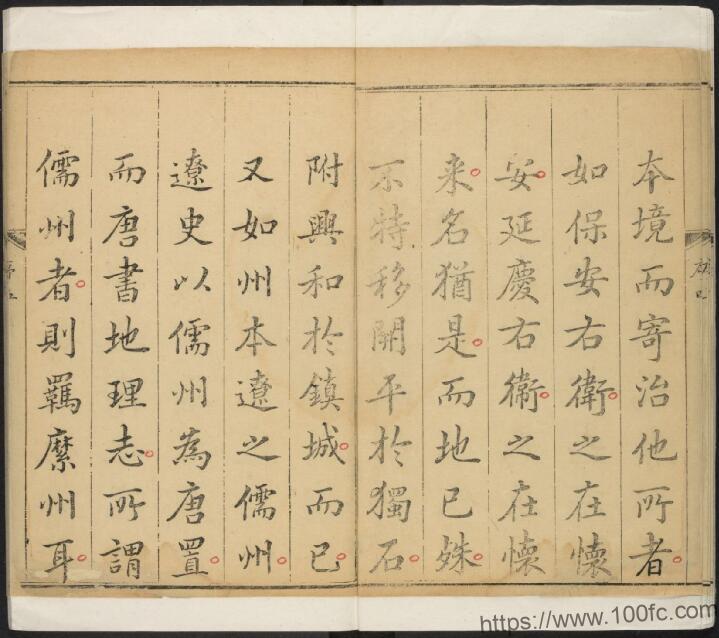 本境而寄治他所者
如保安右衛之在懷
安延慶右衛之在懷
来名猶是而地已殊
不特移開平於獨石
附興和於鎮城而已
又如州本遼之儒州
遼史以儒州為唐置
而唐書地理志所謂
儒州者則羈縻州耳
https://www.100fc.com